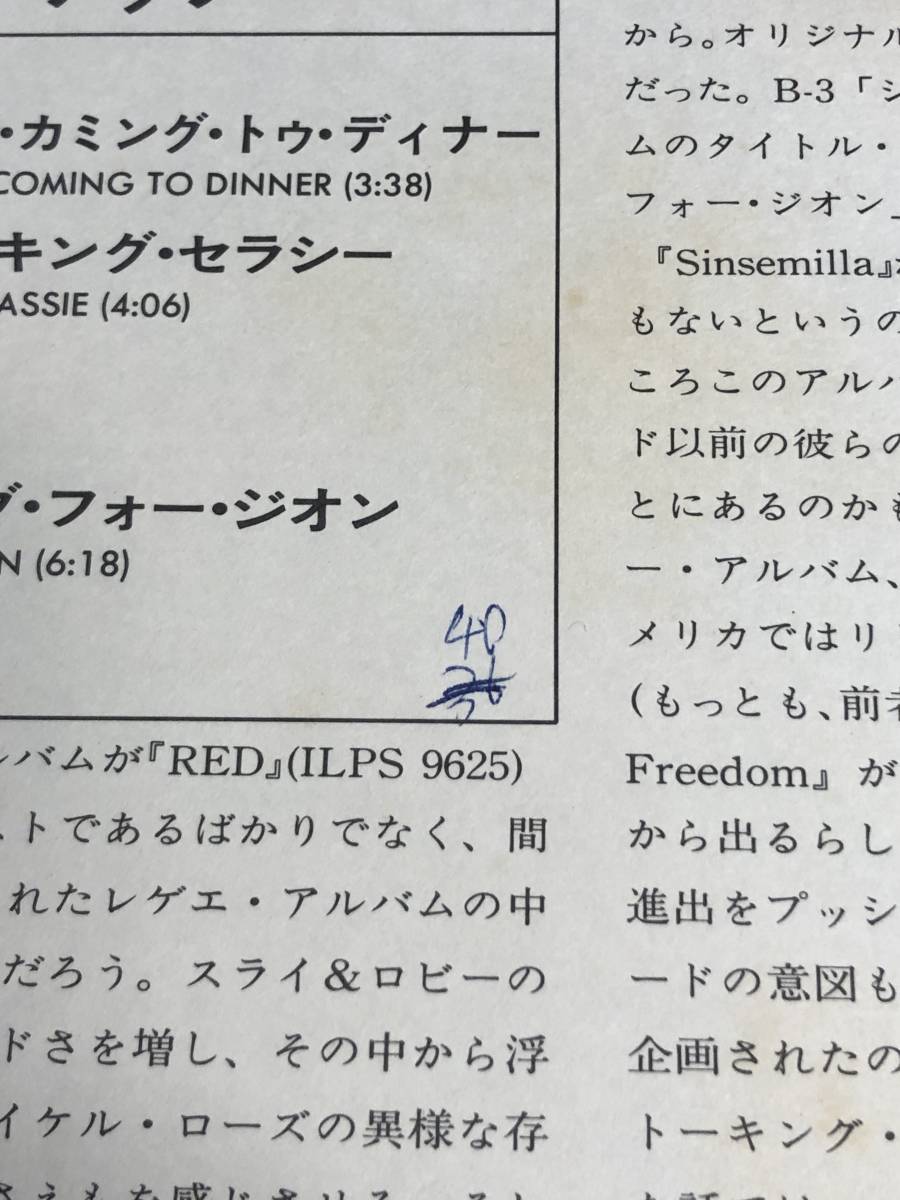 ・カミング・トゥ・ディナー
COMING TO DINNER (3:38)
キング・セラシー
ASSIE (4:06)
グ・フォー・ジオン
N (6:18)
40
ルバムが『RED』(ILPS 9625)
ストであるばかりでなく、間
れたレゲエ・アルバムの中
だろう。スライ&ロビーの
ドさを増し、その中から浮
イケル・ローズの異様な存
さえもを感じさせる。そし
から。オリジナル
だった。B-3「シ
ムのタイトル・
フォー・ジオン」
『Sinsemilla』
もないというの
ころこのアルバ
ド以前の彼らの
とにあるのかも
ー・アルバム、
メリカではリ
(もっとも、前者
Freedom』が
から出るらし
進出をプッシ
ードの意図も
企画されたの
トーキング・